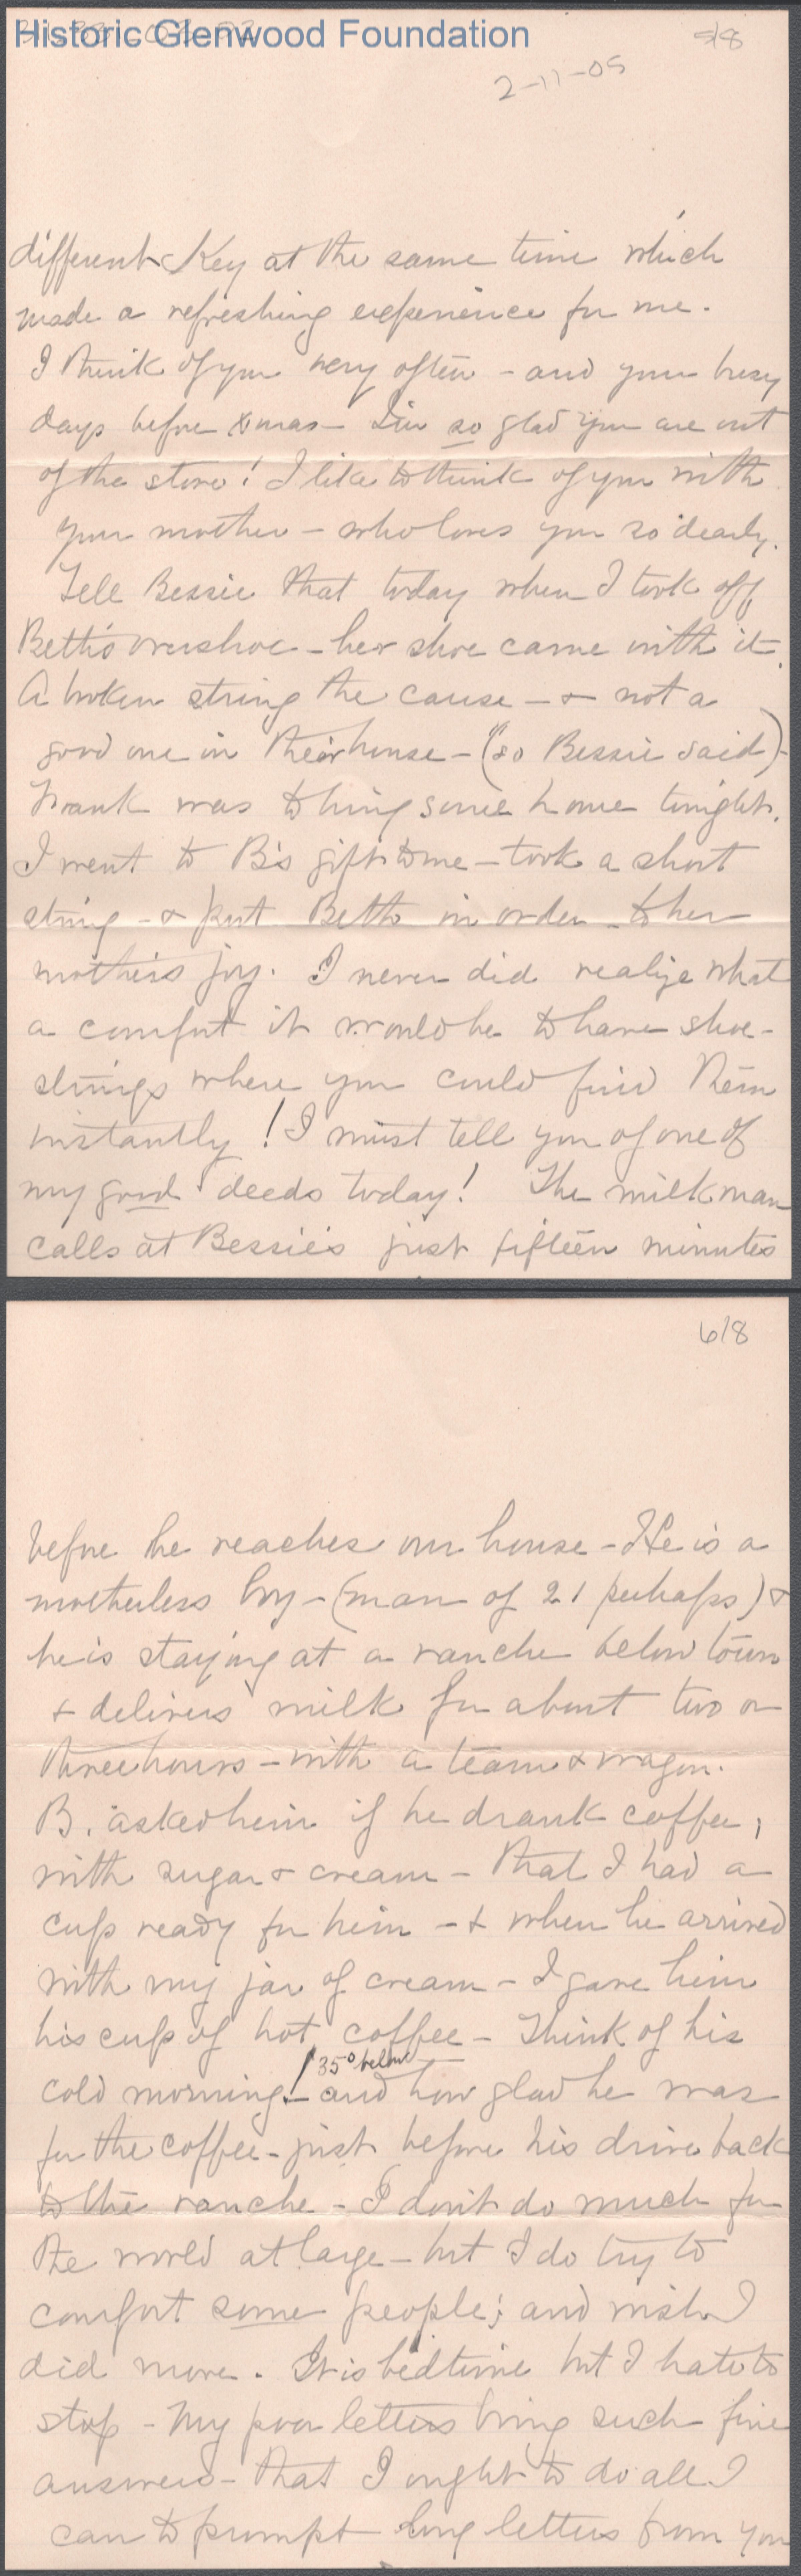 Historic Glenwood Foundation
5/8
2-11-05
different Key at the same time which
made a refreshing experience for me.
I think of you very often - and your busy
days before Xmas - I'm so glad you are out
of the store! I like to think of you with
your mother - who loves you so dearly.
Tell Bessie that today when I took off
Beth's overshoe - her shoe came with it.
A broken string the cause - & not a
good one in their house - (so Bessie said) -
Frank was to bring some home tonight.
I went to B's gift to me - took a short
string - & put Beth in order - to her
mother's joy. I never did realize what
a comfort it would be to have shoe-
strings where you could find them
instantly! I must tell you of one of
my good deeds today! The milkman
calls at Bessie's just fifteen minutes
6/8
before he reaches our house - He is a
motherless boy - (man of 21 perhaps) &
he is staying at a ranche below town
& delivers milk for about two or
three hours - with a team & wagon.
B. asked him if he drank coffee,
with sugar & cream - that I had a
cup ready for him - & when he arrived
with my jar of cream - I gave him
his cup of hot coffee - Think of his
35° below
cold morning! - and how glad he was
for the coffee - just before his drive back
to the ranche - I don't do much for
the world at large - but I do try to
comfort some people; and wish I
did more. It is bedtime but I hate to
stop - My poor letters bring such fine
answers - that I ought to do all I
can to prompt long letters from you